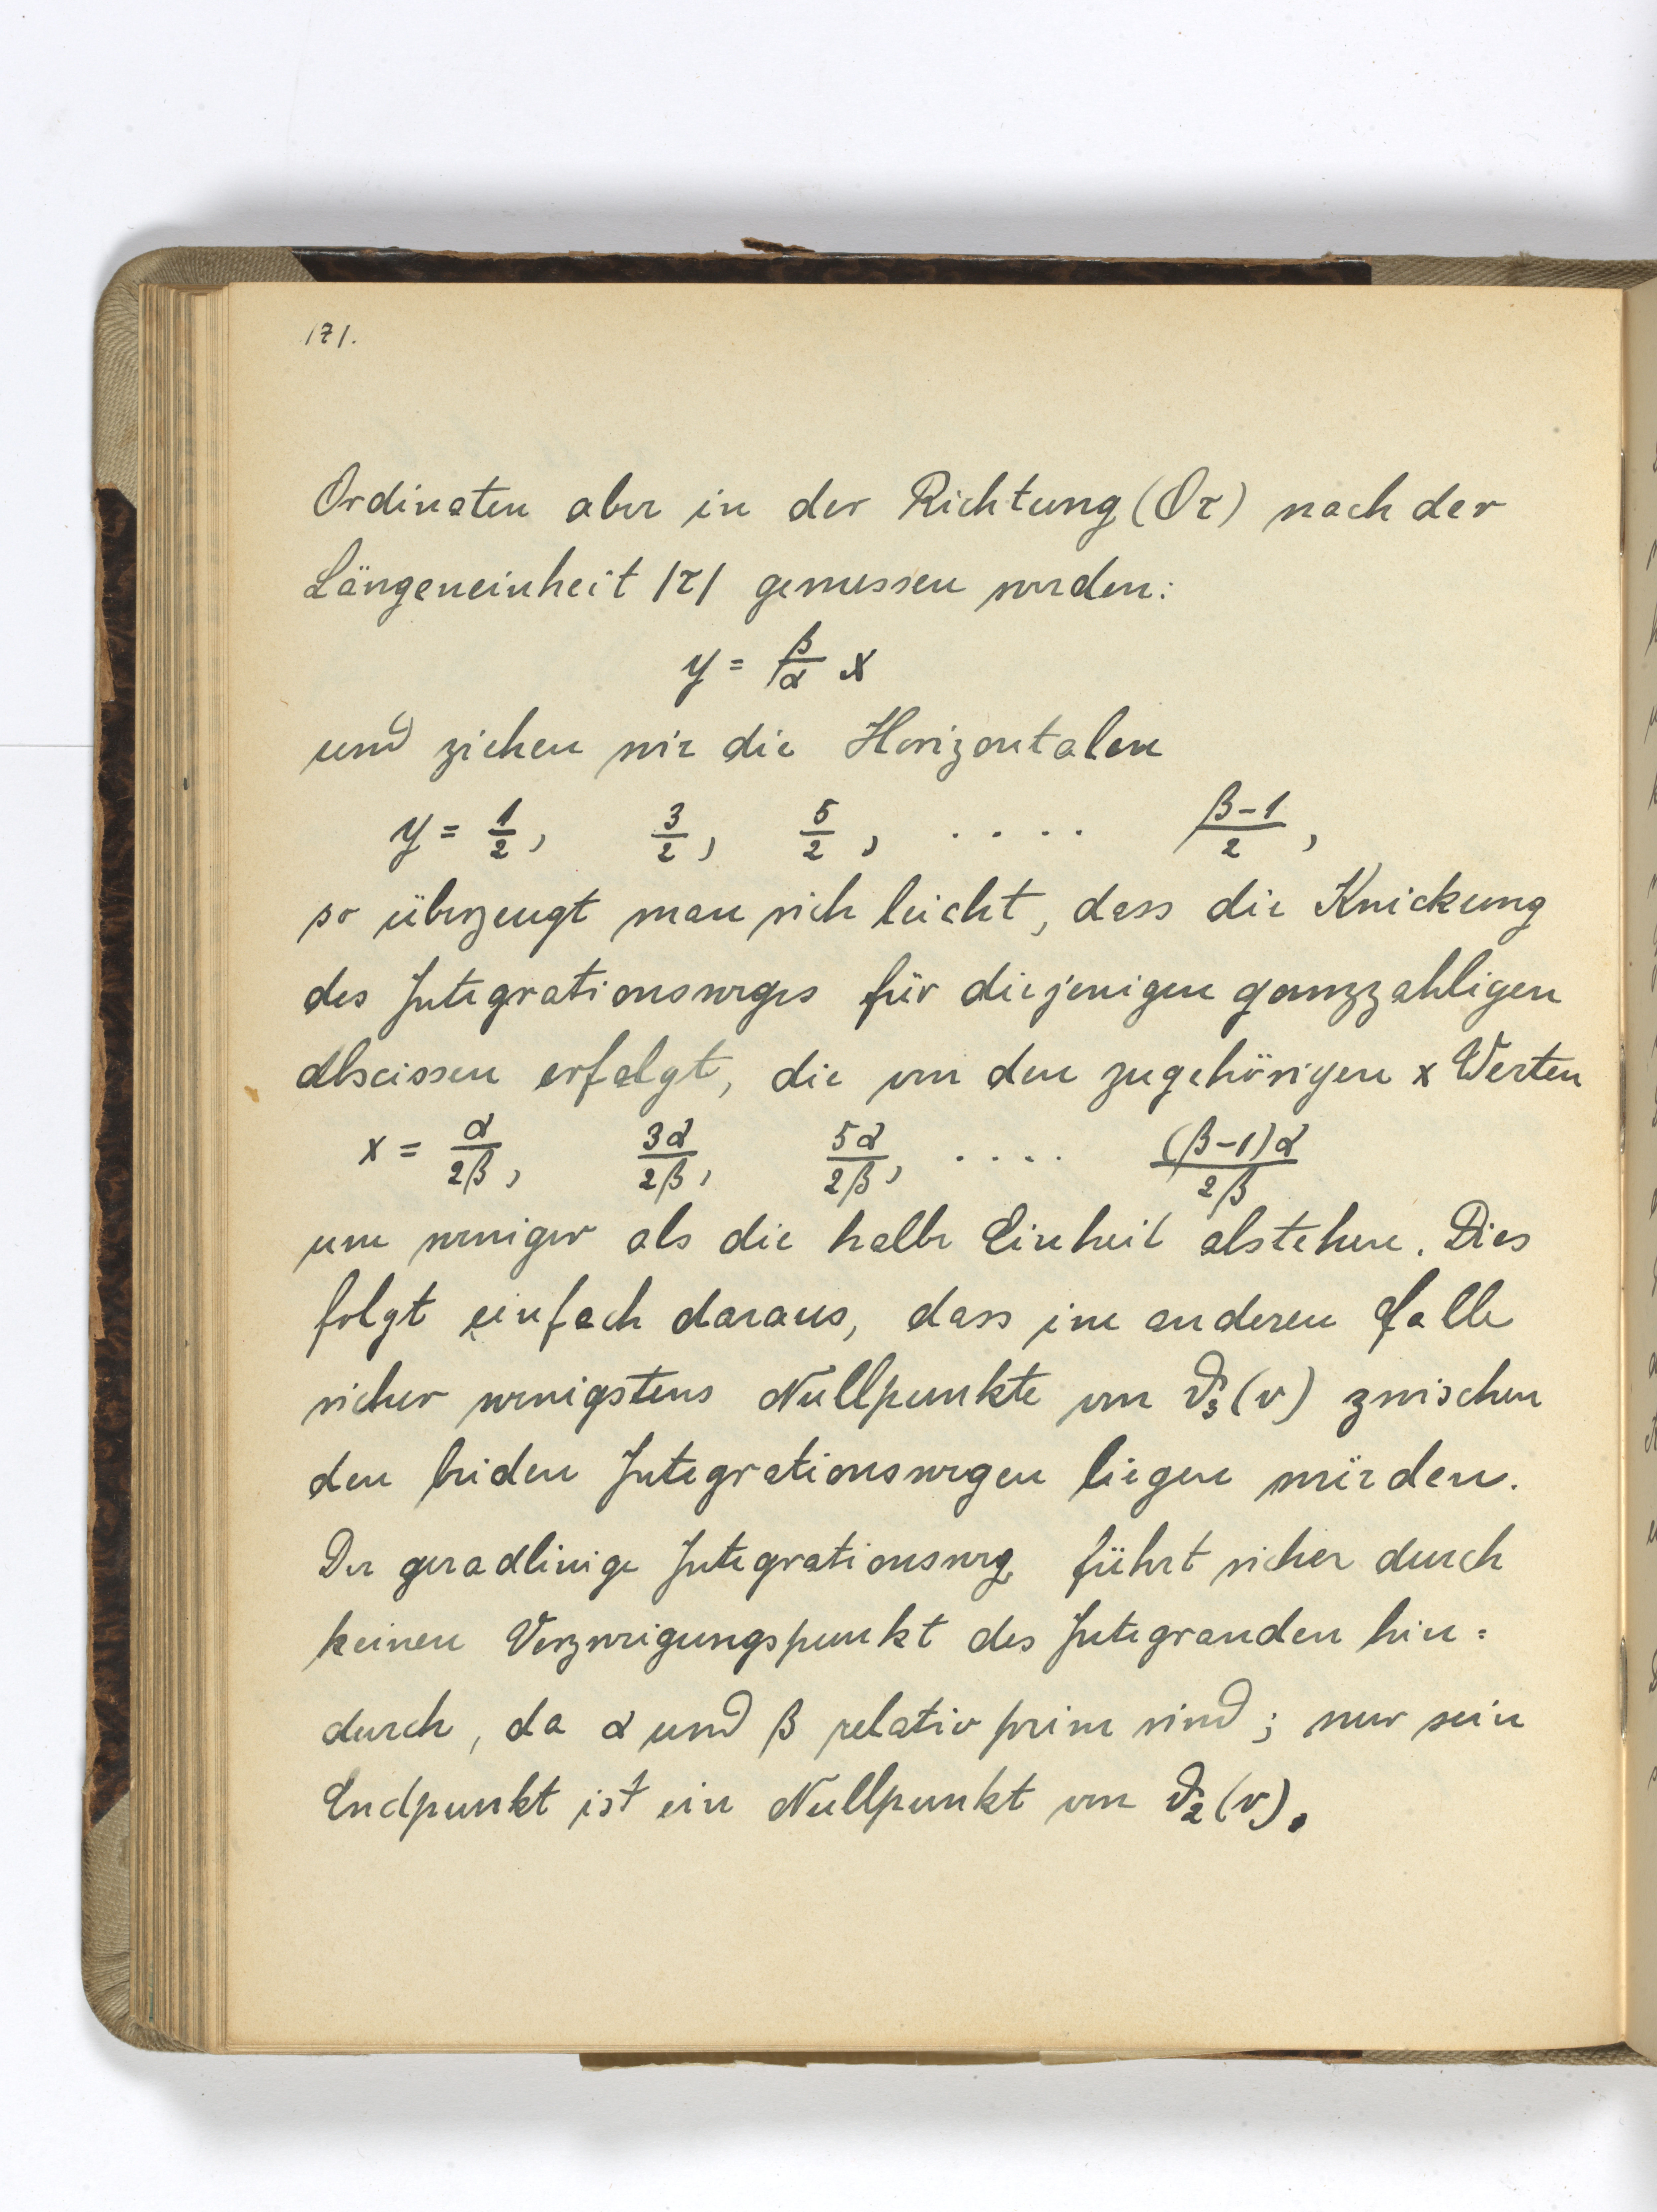 171.
Ordinaten aber in der Richtung (Oτ) nach der
Längeneinheit |τ| gemessen werden:
y = β/α x
und ziehen wir die Horizontalen
y = 1/2, 3/2, 5/2, .... (β-1)/2,
so überzeugt man sich leicht, dass die Knickung
des Integrationsweges für diejenigen ganzzahligen
Abscissen erfolgt, die von den zugehörigen x Werten
x = α/2β, 3α/2β, 5α/2β, .... (β-1)α/2β
um weniger als die halbe Einheit abstehen. Dies
folgt einfach daraus, dass im anderen Falle
sicher wenigstens Nullpunkte von ϑ₃(v) zwischen
den beiden Integrationswegen liegen würden.
Der geradlinige Integrationsweg führt sicher durch
keinen Verzweigungspunkt des Integranden hin=
durch, da α und β relativ prim sind; nur sein
Endpunkt ist ein Nullpunkt von ϑ₂(v).